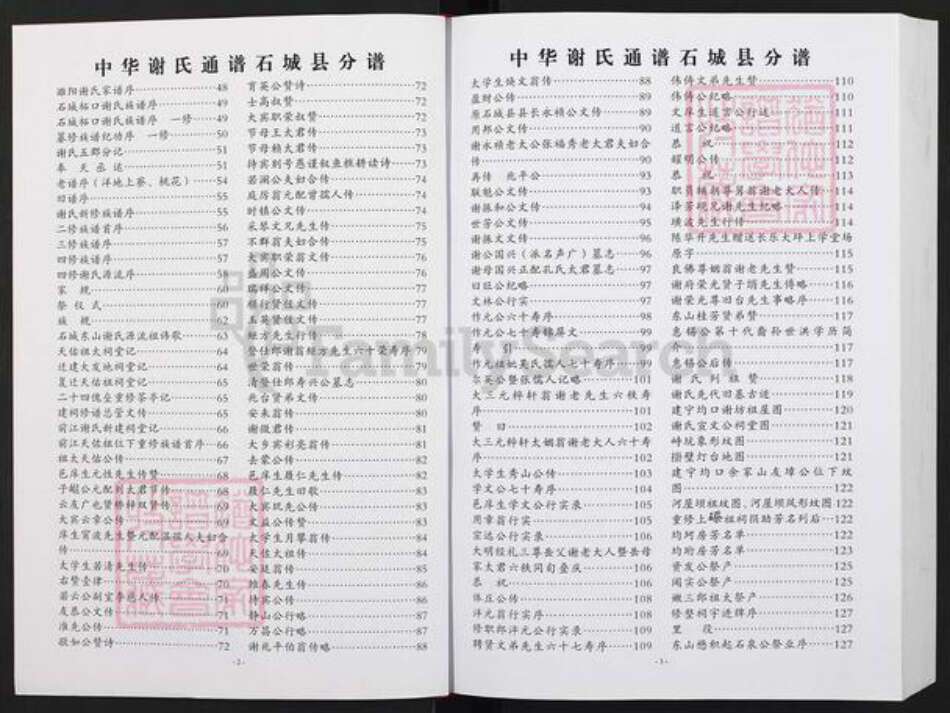 中华谢氏通谱石城县分谱
睢阳谢氏家谱序……48
石城柘口谢氏族谱序……49
石城柘口谢氏族谱序 一修……49
纂修族谱纪功序 一修……50
谢氏五郡分记……51
奉天丞运……54
老谱序（洋地上寨、桃花）……54
旧谱序……55
谢氏新修族谱序……55
二修族谱首序……56
三修族谱序……57
四修族谱序……57
四修谢氏源流序……58
家 规……60
祭仪式……60
族 规……62
石城东山谢氏源流祖诗歌……63
天佑祖大祠堂记……64
迁建大发地祠堂记……65
复迁天佑祖祠堂记……65
二十四傀垒重修荼亭记……65
建祠修谱总管文传……66
前江谢氏新建祠堂记……66
前江天佑祖位下重修族谱首序……66
祖太天佑公传……67
邑庠生元性先生传赞……68
子超公元配刘太君节传……68
云友广也贤桥梓双赞传……68
大宾云章公传……69
庠生宵波先生暨元配温孺人夫妇合
传……69
太学生若清先生传……70
右赞壹律……70
若云公副室李慈人传……71
友恭公文传……71
准先公传……71
敬如公赞诗……72
育英公赞诗……72
士高叔赞……72
大宾职荣叔赞……72
节母王太君传……73
节母赖太君传……73
待宾别号愚谨叙鱼樵耕读诗……73
若澜公夫妇合传……74
庭厉翁元配曾孺人传……74
时镇公文传……74
采琴文兄先生传……75
不群翁夫妇合传……75
大宾职荣翁文传……76
盛周公文传……76
瑞祥公文传……77
桢行贤侄文传……77
玉荣贤侄文传……77
经方先生行传……78
登仕郎谢翁经方先生六十荣寿序 79
世荣翁传……79
清登仕郎寿兴公墓志……80
兆台贤弟文传……80
安来翁传……80
谢微君传……81
大乡宾彩亮翁传……81
去蒙公传……82
邑庠生履仁先生传……82
履仁先生旧歌……83
大宾玑先公传……83
文益公传赞……83
大学生月攀翁传……84
天位太祖传……84
安廷翁传……85
维春先生传……86
待宾公传……86
静山公行略……87
万昌公行略……87
谢兆平伯翁传略……88
·2·
中华谢氏通谱石城县分谱
太学生焕文翁传……88
蓝财公传……89
原石城县县长水桢公文传……89
周邦公文传……90
谢水桢老大公张福秀老太君夫妇合
传……90
再传 兆平公……93
联魁公文传……93
谢振和公文传……94
世芳公文传……95
谢振文文传……96
谢公国兴（派名声广）墓志……96
谢母国兴正配孔氏太君墓志……97
曰旺公纪略……97
文林公行实……97
作元公六十寿序……98
作元公七十寿锦屏文……99
寿 引……99
作元祖妣吴氏孺人七十寿序……99
尔英公暨张儒人记略……101
大三元梓轩翁谢老先生六秩寿
序……101
赞 曰……102
大三元梓轩太姻翁谢老大人六十寿
序……102
太学生秀山公传……103
学文公七十寿序……104
邑庠生学文公行实录……105
周章翁行实……105
宗远公行实录……106
大明经礼三尊岳父谢老大人暨岳母
家太君六秩同旬叠庆……106
恭 祝……106
体庄公传……108
泮元翁行实序……108
修职郎泮元公行实录……109
聘贤文弟先生六十七寿序……109
伟俦文弟先生赞……110
伟俦公纪略……110
文庠生道言公行述……111
道言公纪略……111
恭 祝……112
耀明公传……112
恭 祝……113
职员辅朝尊舅翁谢老大人传……114
泽芳砚兄谢先生纪略……114
璜波先生行传……114
陈华升先生赠送长乐大坪上学堂场
原字……115
良佛尊姻翁谢老先生赞……115
谢府荣光贤子谓先生传略……116
谢荣光尊旧台先生事略序……116
东山桂芳贤弟赞……117
惠锡公第十代裔孙世洪学历简
介……117
惠锡公后传……117
谢氏列祖赞……118
谢氏先代旧墓古迹……119
建宁均口谢坊祖屋图……120
谢氏宣文公祠堂图……121
峙坑象形坟图……121
掛壁灯台地图……121
建宁均口余家山友璋公位下坟
图……122
河屋坝祖坟图、河屋坝凤形坟图……122
重修上碟祖祠捐助芳名列后……122
均坷房芳名单……123
均玠房芳名单……123
资发公祭产……125
闻实公祭产……125
嫩三郎祖太祭产……126
修整祠宇进牌序……127
里 役……127
东山懋积起石泉公祭业序……127
·3·